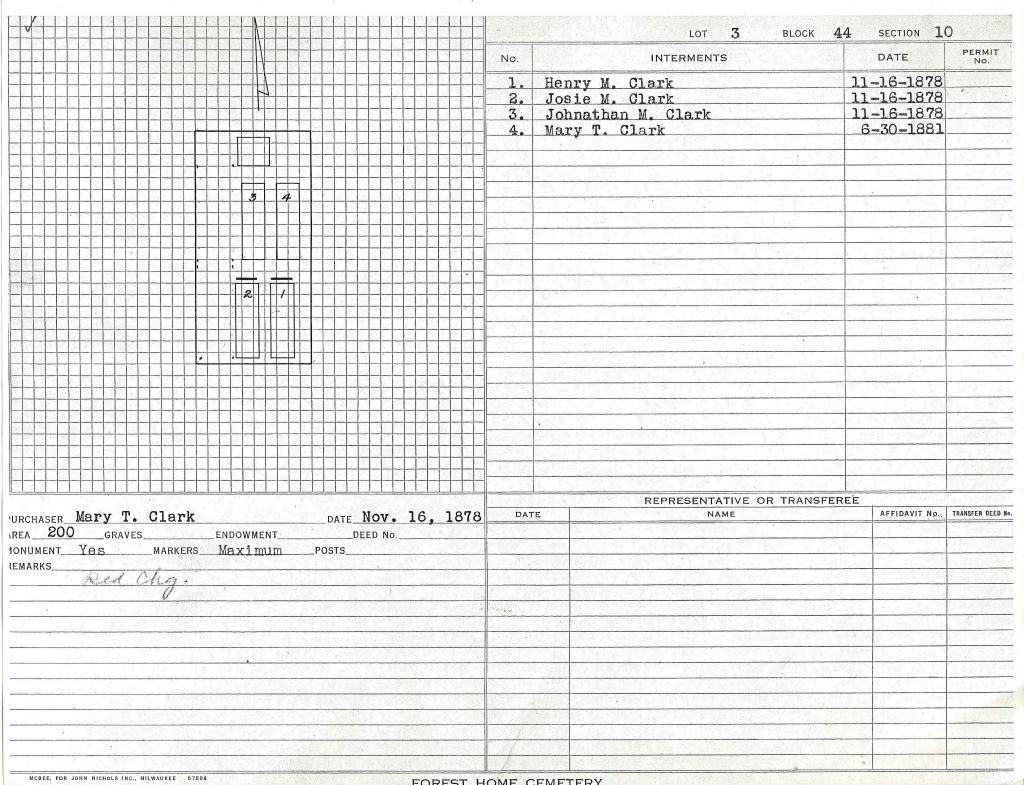 LOT 3 BLOCK 44 SECTION 10
No. INTERMENTS DATE PERMIT No.
1. Henry M. Clark 11-16-1878
2. Josie M. Clark 11-16-1878
3. Johnathan M. Clark 11-16-1878
4. Mary T. Clark 6-30-1881
3 4
2 1
URCHASER Mary T. Clark DATE Nov. 16, 1878
REA 200 GRAVES ENDOWMENT DEED No.
ONUMENT Yes MARKERS Maximum POSTS
EMARKS
Chg.
REPRESENTATIVE OR TRANSFEREE
DATE NAME AFFIDAVIT No. TRANSFER DEED No.
MCBEE, FOR JOHN NICHOLS INC., MILWAUKEE 57506
FOREST HOME CEMETERY